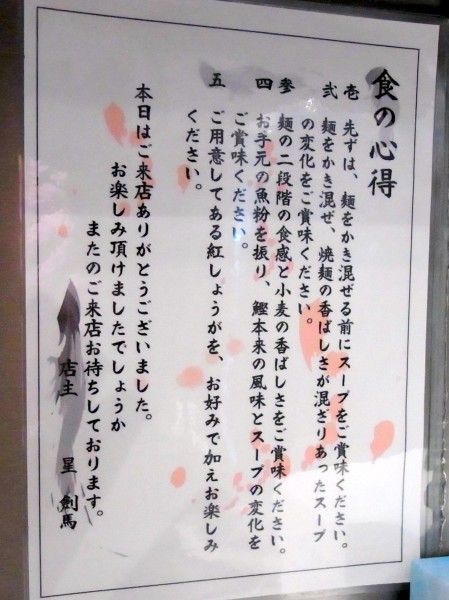 食の心得
壱 先ずは、麺をかき混ぜる前にスープをご賞味ください。
弐 麺をかき混ぜ、焼麺の香ばしさが混ざりあったスープ
の変化をご賞味ください。
参 麺の二段階の食感と小麦の香ばしさをご賞味ください。
四 お手元の魚粉を振り、鰹本来の風味とスープの変化を
ご賞味ください。
五 ご用意してある紅しょうがを、お好みで加えお楽しみ
ください。
本日はご来店ありがとうございました。
お楽しみ頂けましたでしょうか
またのご来店お待ちしております。
店主 星 剣馬